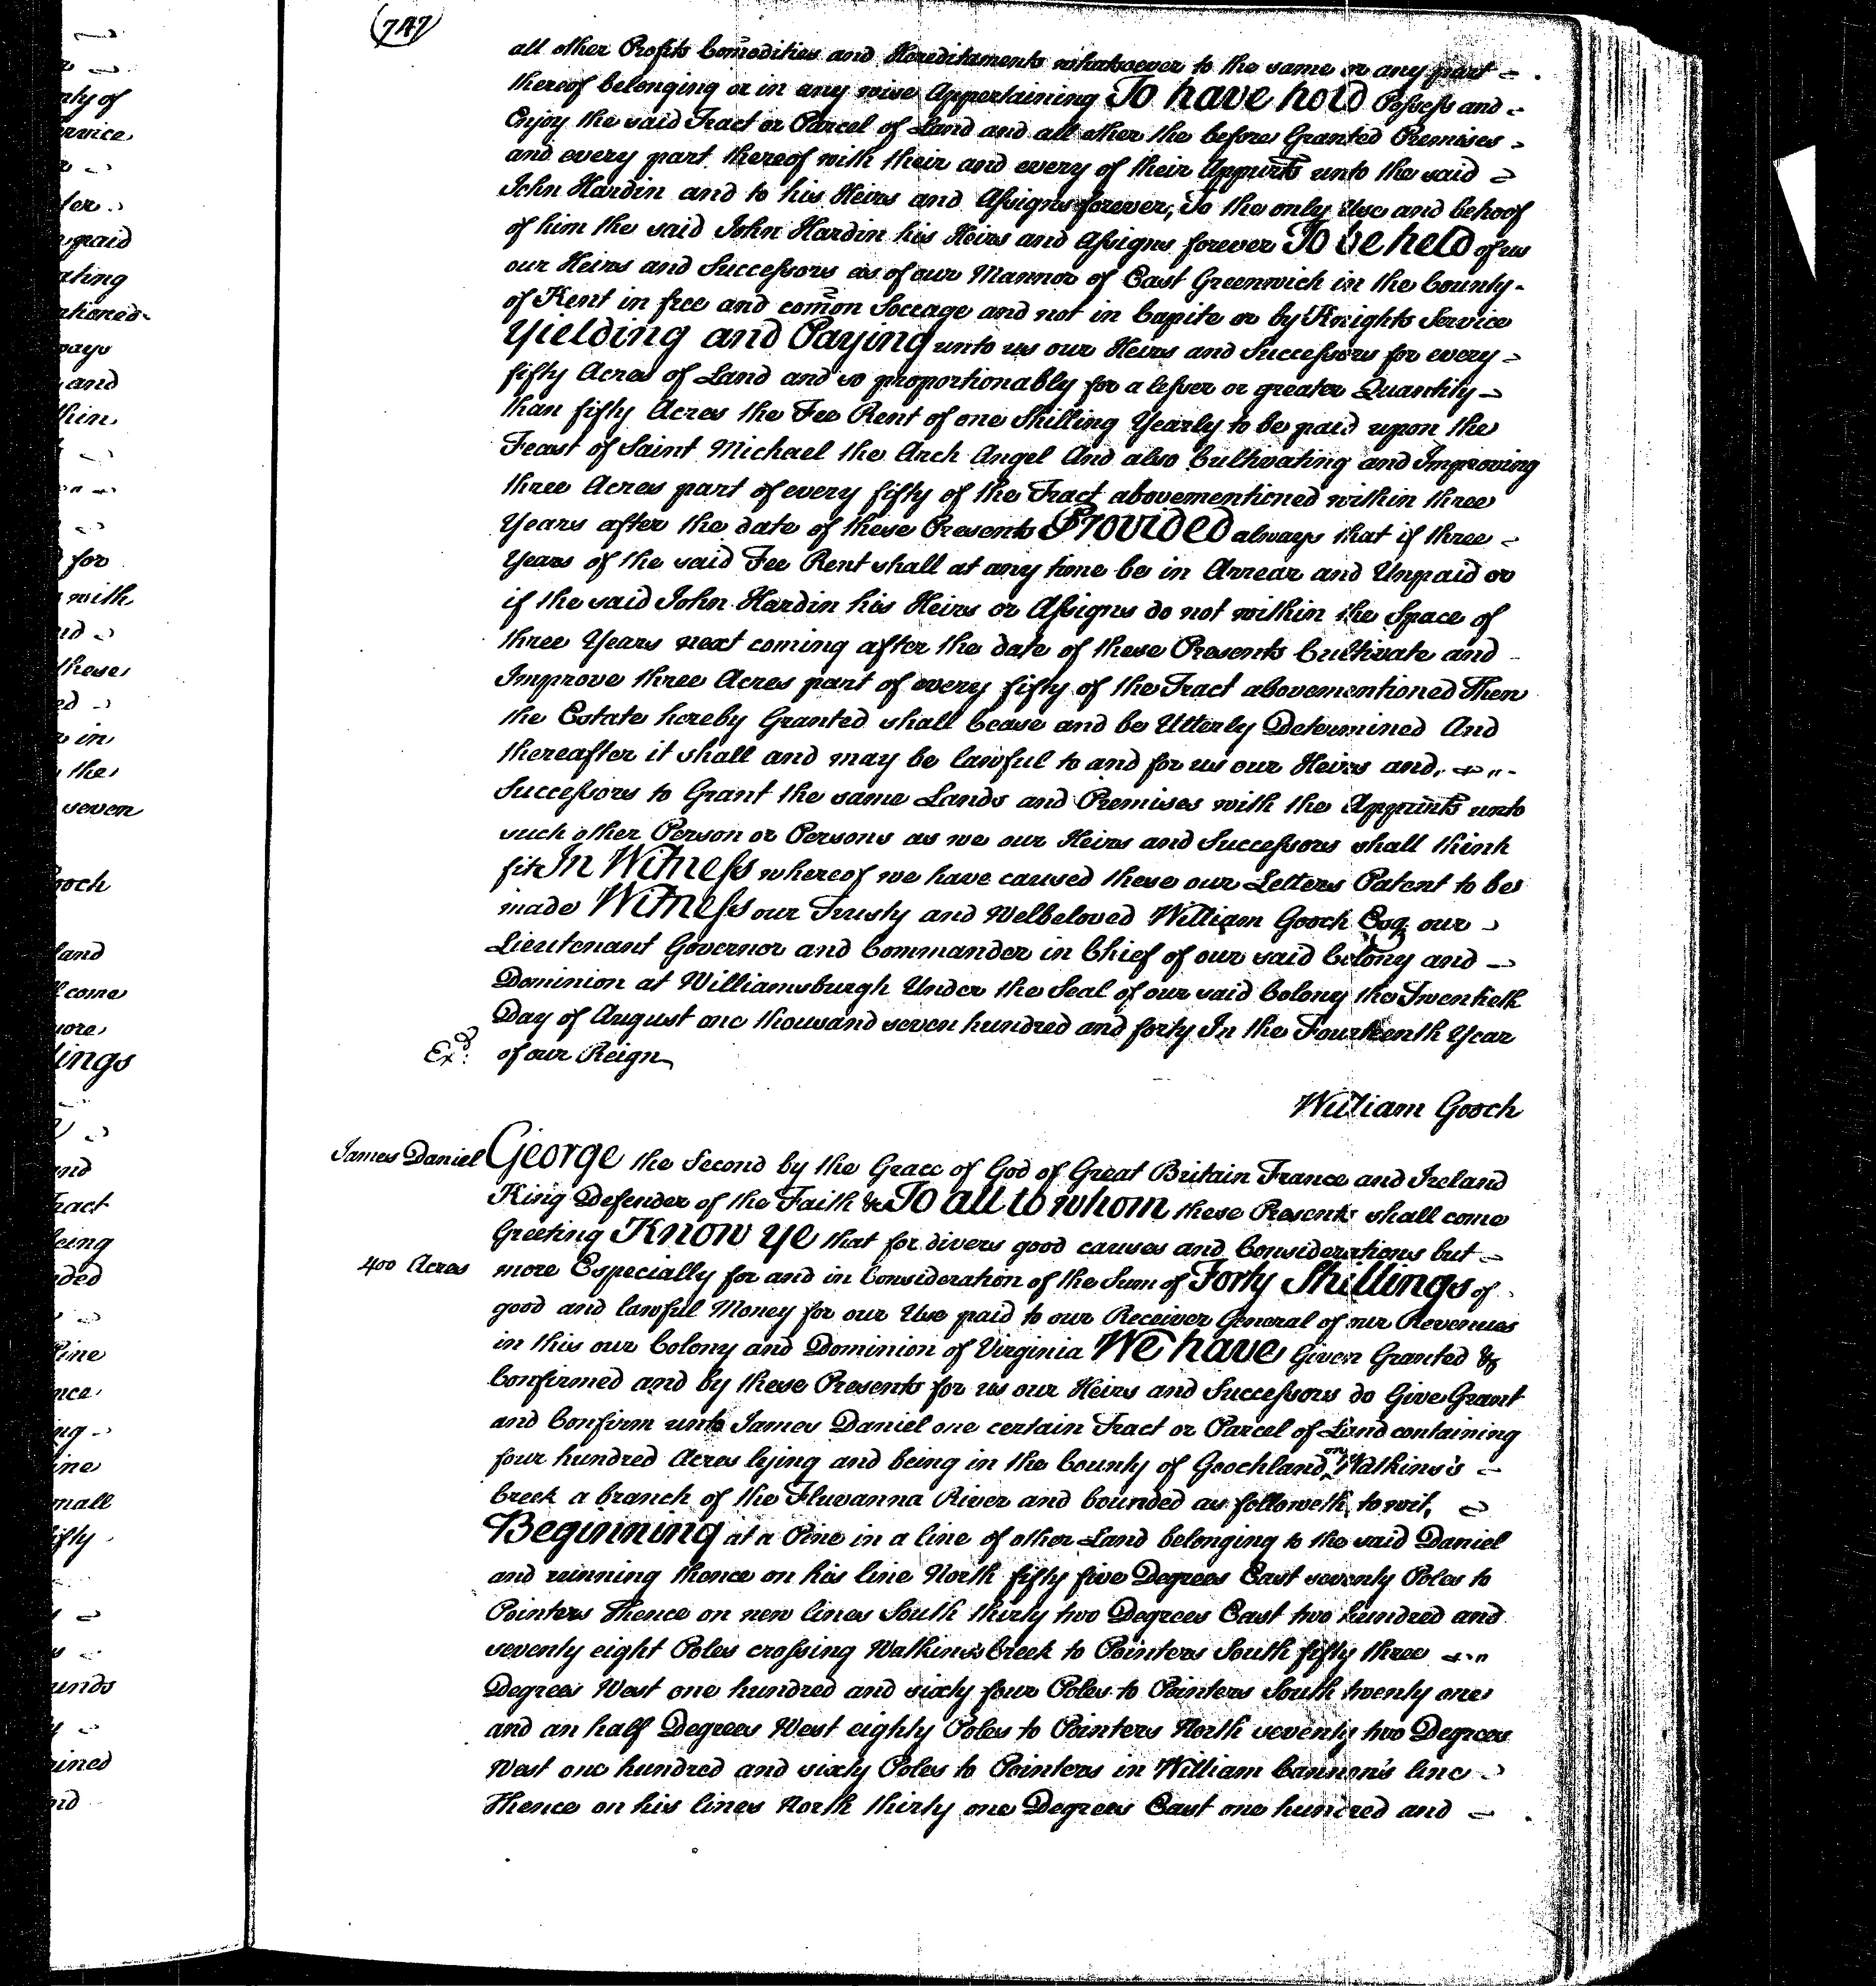 (747)
all other Profits Com̄odities and Hereditaments whatsoever to the same or any part
thereof belonging or in any wise Appertaining To have hold Possess and
Enjoy the said Tract or Parcel of Land and all other the before Granted Premises
and every part thereof with their and every of their Appurts unto the said
John Hardin and to his Heirs and Assigns forever, To the only Use and behoof
of him the said John Hardin his Heirs and Assigns forever To be held of us
our Heirs and Successors as of our Mannor of East Greenwich in the County
of Kent in free and com̄on Soccage and not in Capite or by Knights Service
Yielding and Paying unto us our Heirs and Successors for every
fifty Acres of Land and so proportionably for a lesser or greater Quantity
than fifty Acres the Fee Rent of one Shilling Yearly to be paid upon the
Feast of Saint Michael the Arch Angel And also Cultivating and Improving
three Acres part of every fifty of the Tract abovementioned within three
Years after the date of these Presents Provided always that if three
Years of the said Fee Rent shall at any time be in Arrear and Unpaid or
if the said John Hardin his Heirs or Assigns do not within the Space of
three Years next coming after the date of these Presents Cultivate and
Improve three Acres part of every fifty of the Tract abovementioned Then
the Estate hereby Granted shall Cease and be Utterly Determined And
thereafter it shall and may be lawful to and for us our Heirs and
Successors to Grant the same Lands and Premises with the Appurts unto
such other Person or Persons as we our Heirs and Successors shall think
fit In Witness whereof we have caused these our Letters Patent to be
made Witness our Trusty and Welbeloved William Gooch Esq. our
Lieutenant Governor and Commander in Chief of our said Colony and
Dominion at Williamsburgh Under the Seal of our said Colony the Twentieth
Day of August one thousand seven hundred and forty In the Fourteenth Year
Exd: of our Reign
William Gooch
James Daniel George the Second by the Grace of God of Great Britain France and Ireland
King Defender of the Faith &c To all to whom these Presents shall come
Greeting Know ye that for divers good causes and Considerations but
400 Acres more Especially for and in Consideration of the Sum of Forty Shillings of
good and lawful Money for our Use paid to our Receiver General of our Revenues
in this our Colony and Dominion of Virginia We have Given Granted &
Confirmed and by these Presents for us our Heirs and Successors do Give Grant
and Confirm unto James Daniel one certain Tract or Parcel of Land containing
four hundred Acres lying and being in the County of Goochland on Watkins's
Creek a branch of the Fluvanna River and bounded as followeth, to wit,
Beginning at a Pine in a line of other Land belonging to the said Daniel
and running thence on his line North fifty five Degrees East seventy Poles to
Pointers Thence on new lines South thirty two Degrees East two hundred and
seventy eight Poles crossing Watkins's Creek to Pointers South fifty three
Degrees West one hundred and sixty four Poles to Pointers South twenty one
and an half Degrees West eighty Poles to Pointers North seventy two Degrees
West one hundred and sixty Poles to Pointers in William Cannon's line
Thence on his lines North thirty one Degrees East one hundred and